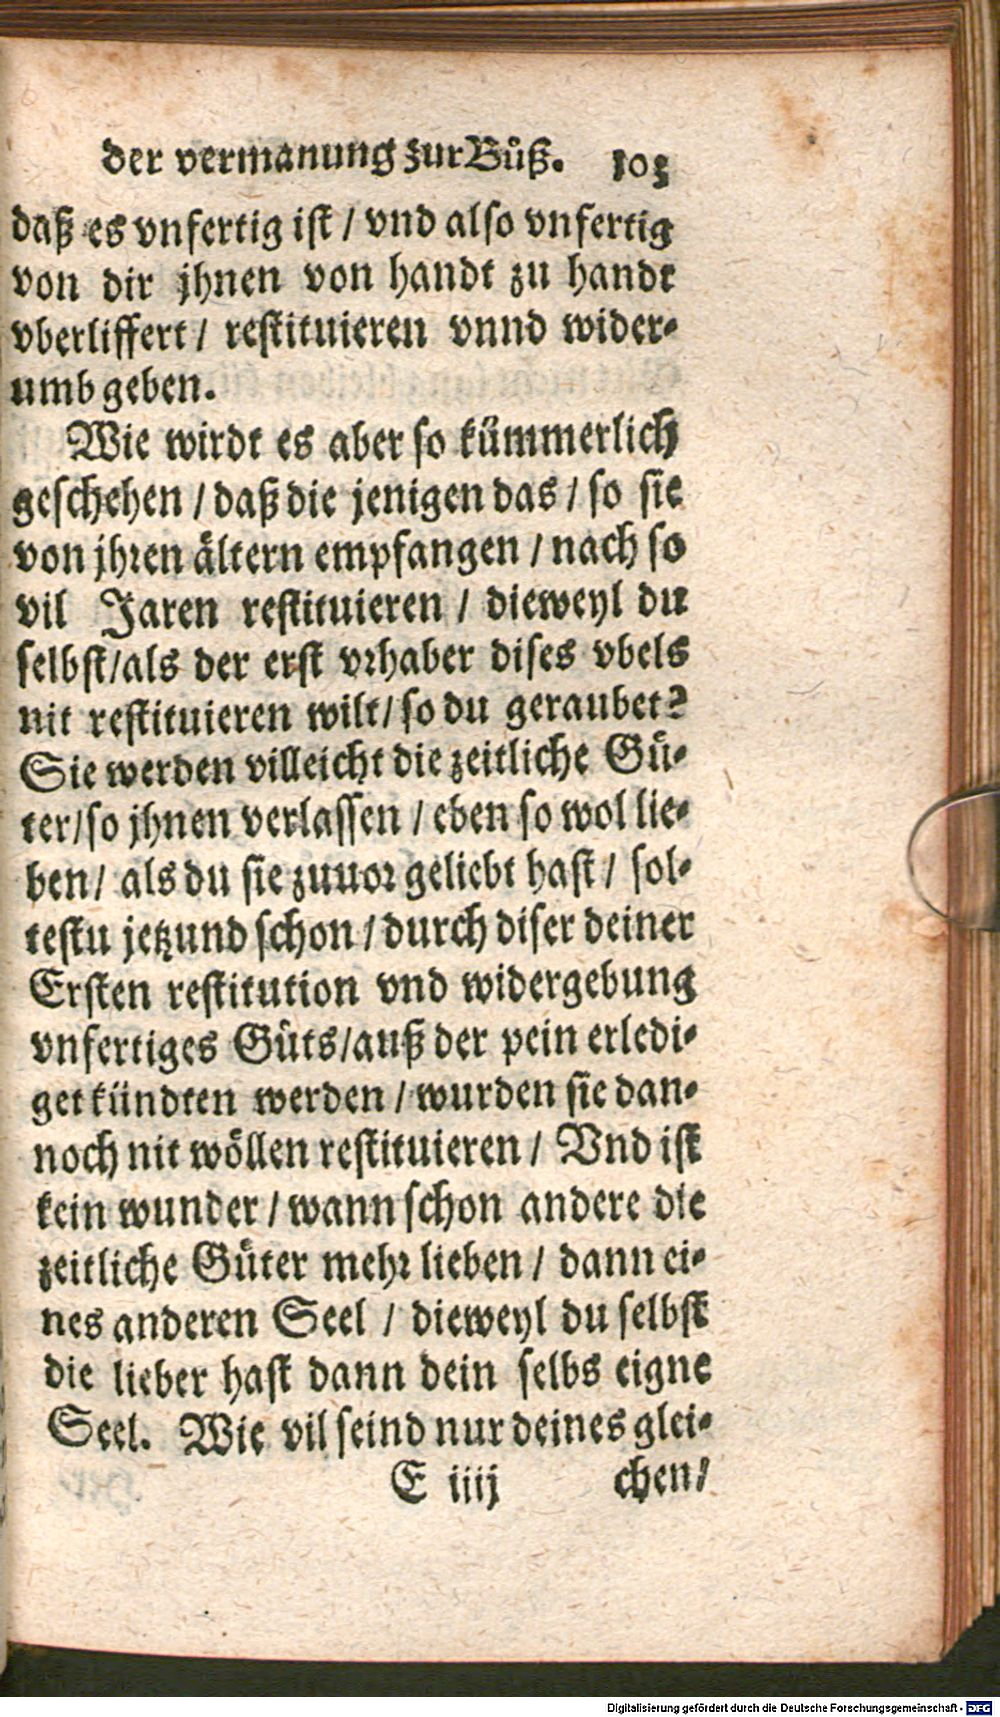 der vermanung zur Bůß. 103
daß es vnfertig ist / vnd also vnfertig
von dir jhnen von handt zu handt
vberliffert / restituieren vnnd wider-
umb geben.
Wie wirdt es aber so kümmerlich
geschehen / daß die jenigen das / so sie
von jhren ältern empfangen / nach so
vil Jaren restituieren / dieweyl du
selbst / als der erst vrhaber dises vbels
nit restituieren wilt / so du geraubet?
Sie werden villeicht die zeitliche Gü-
ter / so jhnen verlassen / eben so wol lie-
ben / als du sie zuuor geliebt hast / sol-
testu jetzund schon / durch diser deiner
Ersten restitution vnd widergebung
vnfertiges Gůts / auß der pein erledi-
get kündten werden / wurden sie dan-
noch nit wöllen restituieren / Vnd ist
kein wunder / wann schon andere die
zeitliche Güter mehr lieben / dann ei-
nes anderen Seel / dieweyl du selbst
die lieber hast dann dein selbs eigne
Seel. Wie vil seind nur deines glei-
E iiij chen /
Digitalisierung gefördert durch die Deutsche Forschungsgemeinschaft - DFG